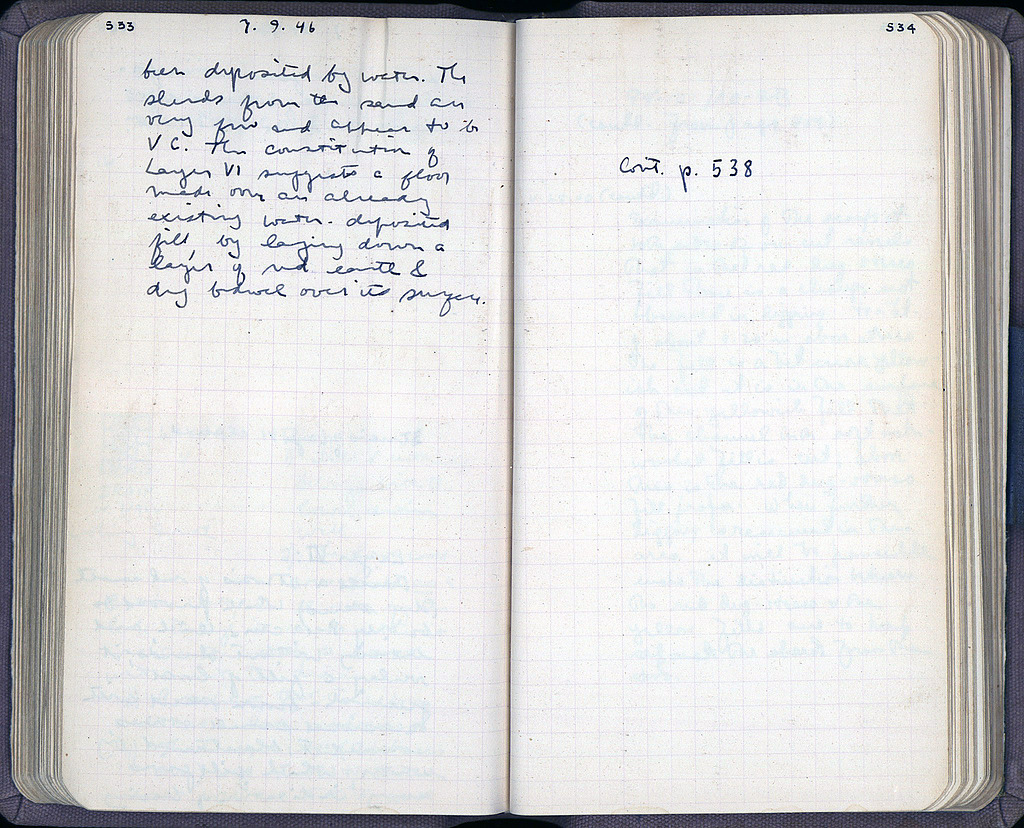 533
7. 9. 46
been deposited by water. The
sherds from the sand are
very few and appear to be
V C. The constitution of
Layer VI suggests a floor
made over an already
existing water-deposited
fill, by laying down a
layer of red earth &
over its surface.
534
Cont. p. 538